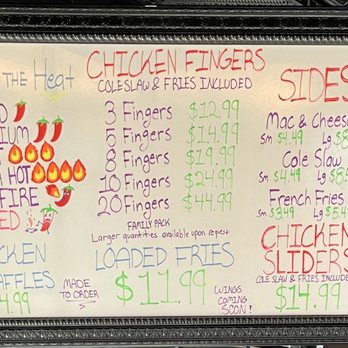 THE Heat
IUM
HOT
FIRE
ED
CKEN
AFFLES
4.99
CHICKEN FINGERS
COLESLAW & FRIES INCLUDED
3 Fingers $12.99
5 Fingers $14.99
8 Fingers $19.99
10 Fingers $24.99
20 Fingers $44.99
FAMILY PACK
Larger quantities available upon request
LOADED FRIES
MADE TO ORDER > $11.99
WINGS COMING SOON!
SIDES
Mac & Cheese
Sm $4.49 Lg $8
Cole Slaw
Sm $4.49 Lg $8
French Fries
Sm $3.49 Lg $5.4
CHICKEN
SLIDERS
COLE SLAW & FRIES INCLUDE
$14.99